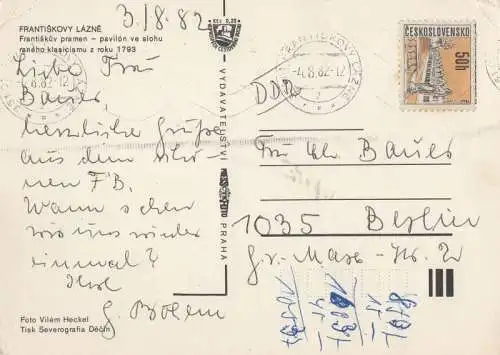 FRANTIŠKOVY LÁZNĚ
Františkův pramen – pavilón ve slohu
raného klasicismu z roku 1793
3./8.82
Liebe Frau
Bauer,
herzliche Grüße
aus dem schö-
nen FB.
Wann sehen
wir uns wieder
einmal?
G. Böhm
Foto Vilém Heckel
Tisk Severografia Děčín
VYDAVATELSTVÍ
PRAHA
Kčs 0,20
FRANTIŠKOVY LÁZNĚ
-4.8.82-12
ČESKOSLOVENSKO
50h
DDR
Frau Bauer
1035 Berlin